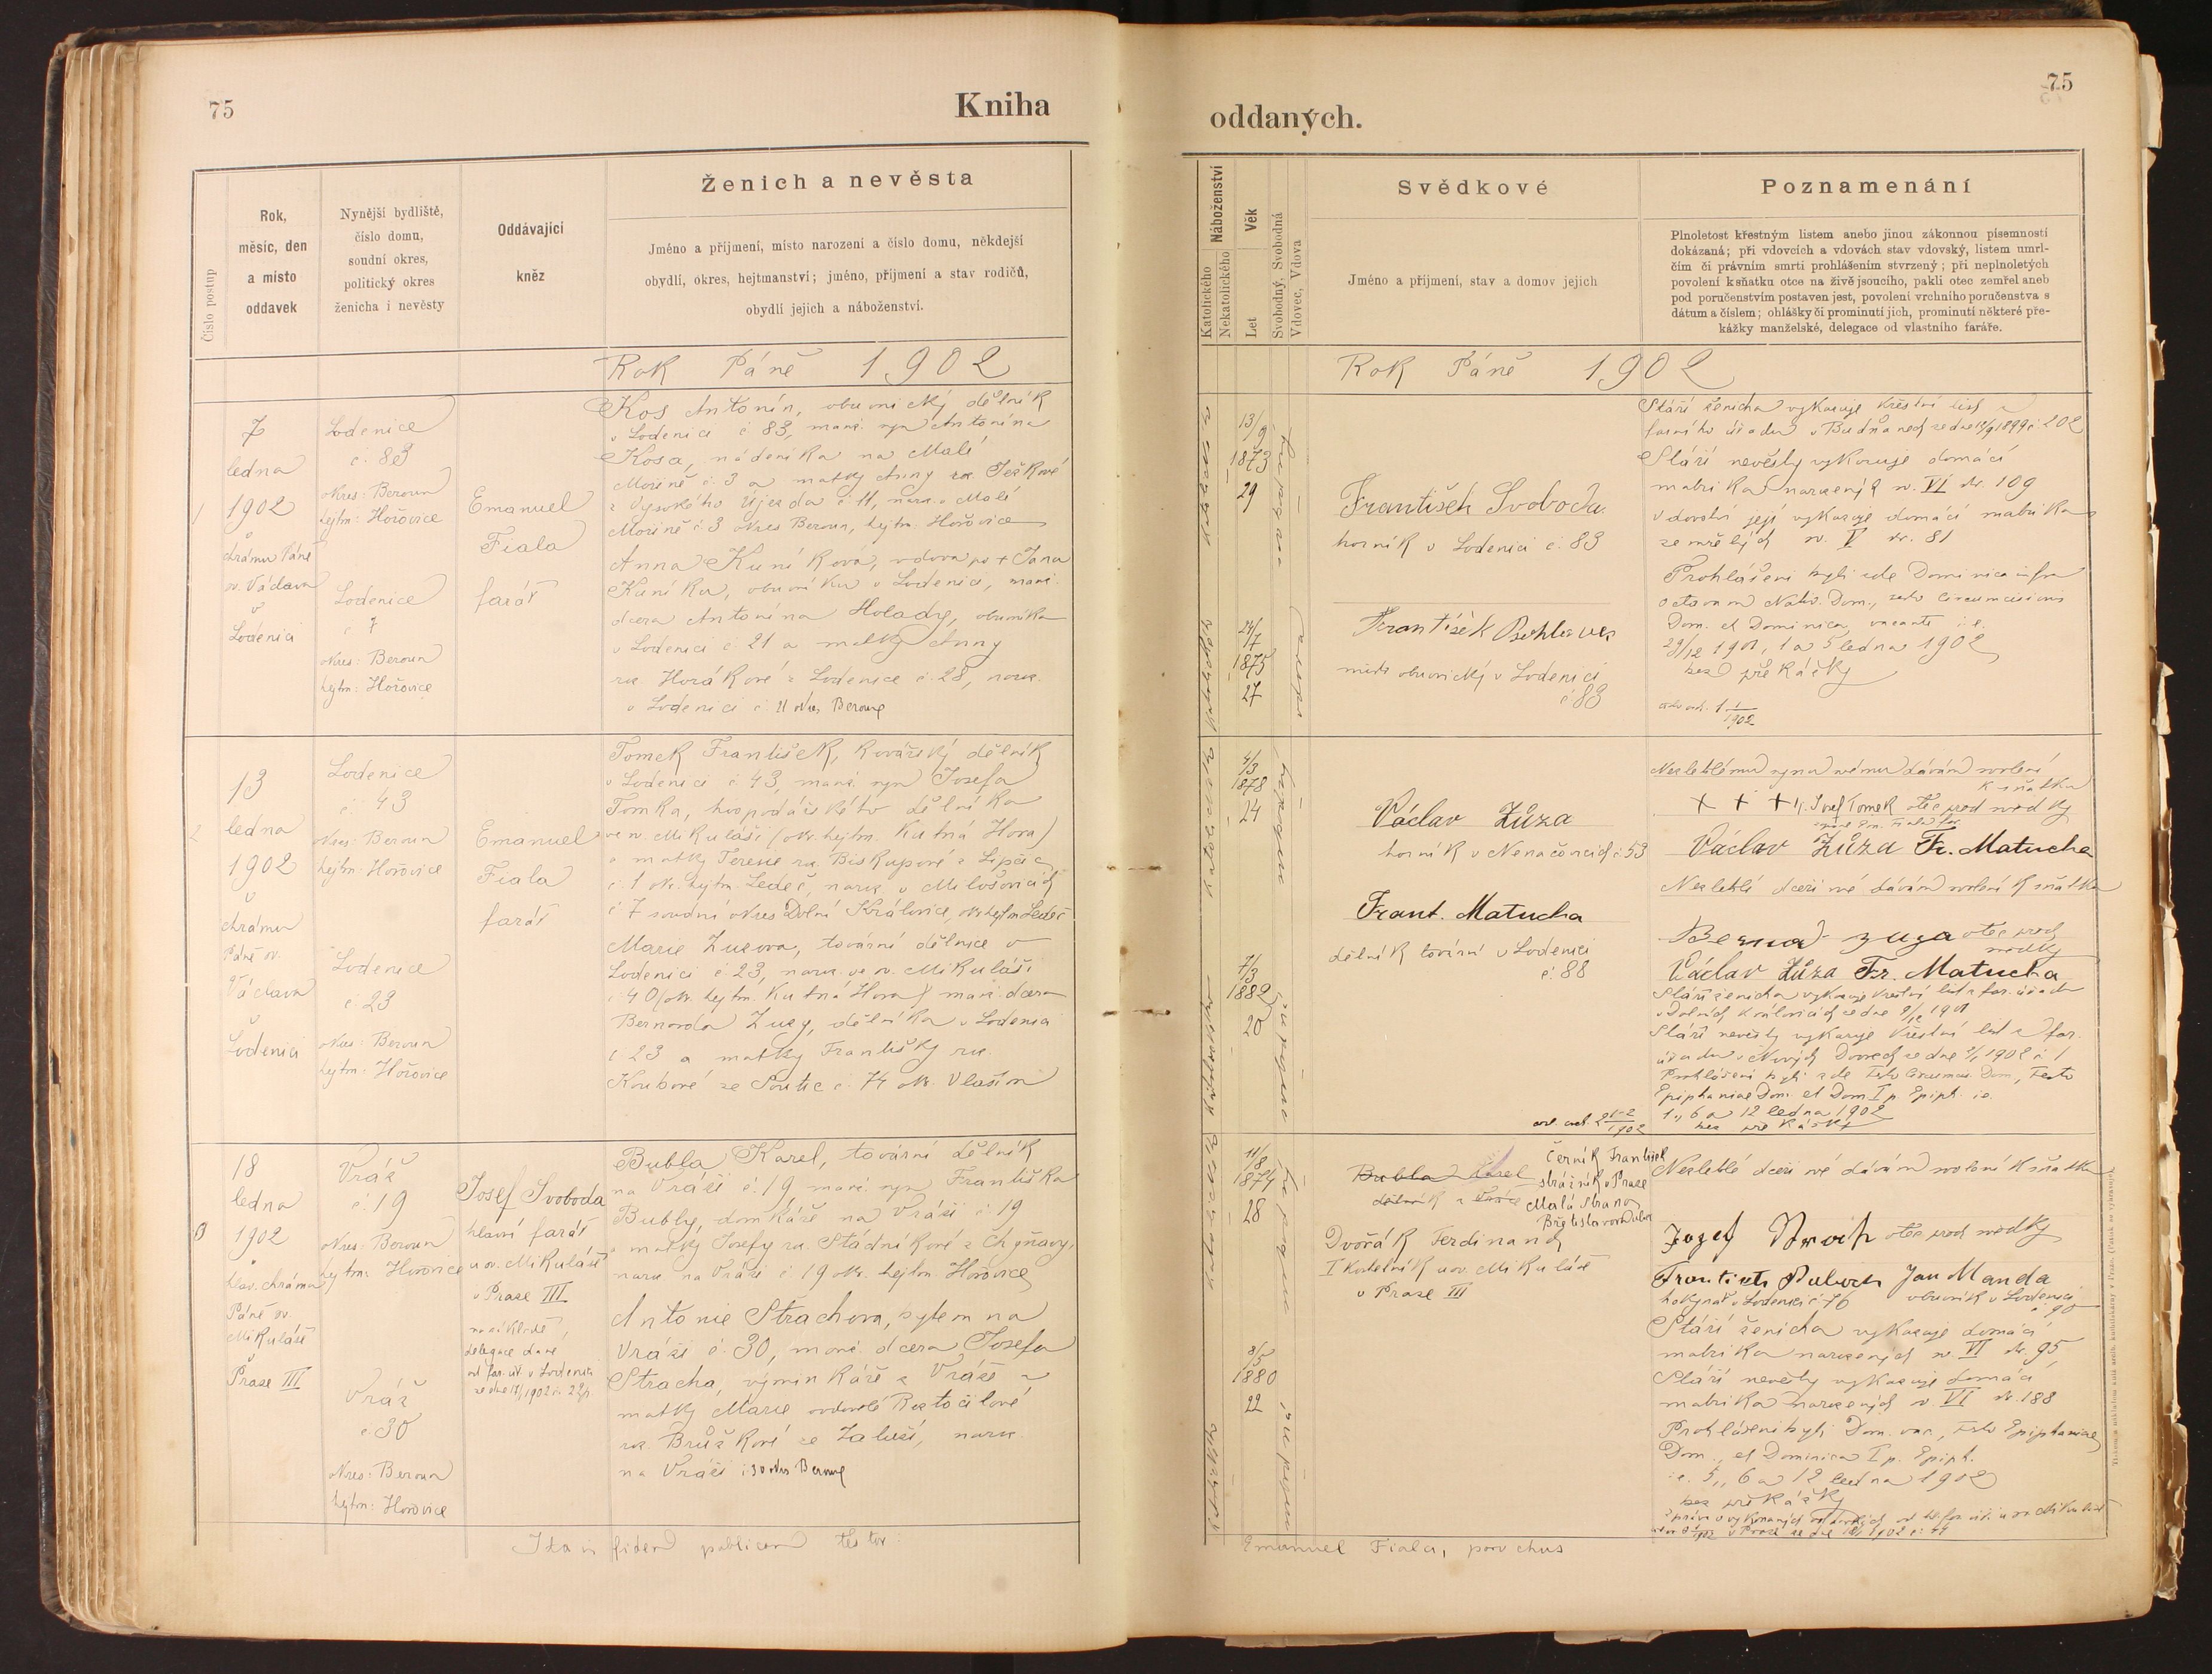 75
Kniha
Číslo postup
Rok,
měsíc, den
a místo
oddavek
Nynější bydliště,
číslo domu,
soudní okres,
politický okres
ženicha i nevěsty
Oddávající
kněz
Ženich a nevěsta
Jméno a příjmení, místo narození a číslo domu, někdejší
obydlí, okres, hejtmanství; jméno, příjmení a stav rodičů,
obydlí jejich a náboženství.
Rok Páně 1902
1
7
ledna
1902
v
chrámu Páně
sv. Václava
v
Loděnici
Loděnice
č. 83
okres: Beroun
hejtm: Hořovice
Loděnice
č 7
okres: Beroun
hejtm: Hořovice
Emanuel
Fiala
farář
Kos Antonín, obuvnický dělník
v Loděnici č 83, manž. syn Antonína
Kosa, nádeníka na Malé
Mořině č. 3 a matky Anny roz. Ježkové
z Vysokého Újezda č. 11, naroz. v Malé
Mořině č 3 okres Beroun, hejtm. Hořovice
Anna Kuníková, vdova po + Janu
Kuníku, obuvníku v Loděnici, manž.
dcera Antonína Holady, obuvníka
v Loděnici č 21 a matky Anny
roz. Horákové z Loděnice č. 28, naroz.
v Loděnici č. 21 okres Beroun
2
13
ledna
1902
v
chrámu
Páně sv.
Václava
v
Loděnici
Loděnice
č. 43
okres: Beroun
hejtm: Hořovice
Loděnice
č 23
okres: Beroun
hejtm: Hořovice
Emanuel
Fiala
farář
Tomek František, kovářský dělník
v Loděnici č 43, manž. syn Josefa
Tomka, hospodářského dělníka
ve sv. Mikuláši (okr. hejtm. Kutná Hora)
a matky Terezie roz. Biskupové z
č 1 okr. hejtm. Ledeč, naroz. v Milošovicích
č 7 soudní okres Dolní Královice, okr. hejtm Ledeč
Marie Zuzova, tovární dělnice v
Loděnici č 23, naroz. ve sv. Mikuláši
č 40 (okr. hejtm. Kutná Hora) manž. dcera
Bernarda Zuzy, dělníka v Loděnici
č 23 a matky Františky roz.
Koubové ze Soutic č. 74 okr. Vlašim
3
18
ledna
1902
v
hlav. chrámu
Páně sv.
Mikuláše
v
Praze III
Vráž
č. 19
okres: Beroun
hejtm: Hořovice
Vráž
č 30
okres: Beroun
hejtm: Hořovice
Josef Svoboda
hlavní farář
u sv. Mikuláše
v Praze III
na základě
delegace dané
od far. úř. v Loděnici
Bubla Karel, tovární dělník
na Vráži č. 19 manž. syn Františka
Bubly, domkáře na Vráži č 19
a matky Josefy roz. Stádníkové z Chyňavy,
naroz. na Vráži č 19 okr. hejtm. Hořovice
Antonie Strachova, bytem na
Vráži č. 30, manž. dcera Josefa
Stracha, výminkáře z Vráže a
matky Marie ovdovělé Roztočilové
roz. Brůžkové ze Zaluží, naroz.
na Vráži č 30 okres Beroun
Ita in fidem publicam testor:
75
oddaných.
Náboženství
Katolického
Nekatolického
Věk
Let
Svobodný, Svobodná
Vdovec, Vdova
Svědkové
Jméno a příjmení, stav a domov jejich
Poznamenání
Plnoletost křestným listem anebo jinou zákonnou písemností
dokázaná; při vdovcích a vdovách stav vdovský, listem umrl-
čím či právním smrti prohlášením stvrzený; při neplnoletých
povolení k sňatku otce na živě jsoucího, pakli otec zemřel aneb
pod poručenstvím postaven jest, povolení vrchního poručenstva s
dátum a číslem; ohlášky či prominutí jich, prominutí některé pře-
kážky manželské, delegace od vlastního faráře.
Rok Páně 1902
katolického
13/9
1873
29
svobodný
František Svoboda
horník v Loděnici č. 83
katolického
24/7
1875
27
vdova
František
mistr obuvnický v Loděnici
č. 83
Stáří ženicha vykazuje křestní list z
farního úřadu v Budňanech ze dne 12/9 1899 č 202
Stáří nevěsty vykazuje domácí
matrika narozených sv. VI str. 109
Vdovství její vykazuje domácí matrika
zemřelých sv. V str. 81
Prohlášeni byli zde Dominica infra
octavam Nativ. Dom., festo Circumcisionis
Dom. et Dominica vacante i.e.
29/12 1901, 1 a 5 ledna 1902
bez překážky
katolického
4/3
1878
24
svobodný
Václav Zůza
horník v Nenačovicích č 53
Frant. Matucha
dělník tovární v Loděnici
č. 88
katolického
7/3
1882
20
svobodná
Nezletilému synu svému dávám svolení
k sňatku
+ + + Josef Tomek otec před svědky
Václav Zůza Fr. Matucha
Nezletilé dceři své dávám svolení k sňatku
Bernad zuza otec před
svědky
Václav Zůza Fr. Matucha
Stáří ženicha vykazuje křestní list z far. úřadu
v Dolních Královicích ze dne
Stáří nevěsty vykazuje křestní list z far.
úřadu v Nových Dvorech ze dne 2/1 1902 č 1
Prohlášeni byli zde Festo Circumcis. Dom., Festo
Epiphaniae Dom. et Dom I p. Epiph. i.e.
1., 6 a 12 ledna 1902
bez překážky
katolického
11/8
1874
28
svobodný
Bubla Karel
dělník z Vráže
Černík František
strážník v Praze
Malá Strana
Břetislavova ulice
Dvořák Ferdinand
I kostelník u sv. Mikuláše
v Praze III
katolického
8/5
1880
22
svobodná
Nezletilé dceři své dávám svolení k sňatku
Jozef Strach otec před svědky
František Jan Manda
hokynář v Loděnici č. 76 obuvník v Loděnici
č. 90
Stáří ženicha vykazuje domácí
matrika narozených sv. VI str. 95,
Stáří nevěsty vykazuje domácí
matrika narozených sv. VI str. 188
Prohlášeni byli Dom. vac., Festo Epiphaniae
Dom., et Dominica I p. Epiph.
i.e. 5., 6 a 12 ledna 1902
bez překážky
Emanuel Fiala, parochus